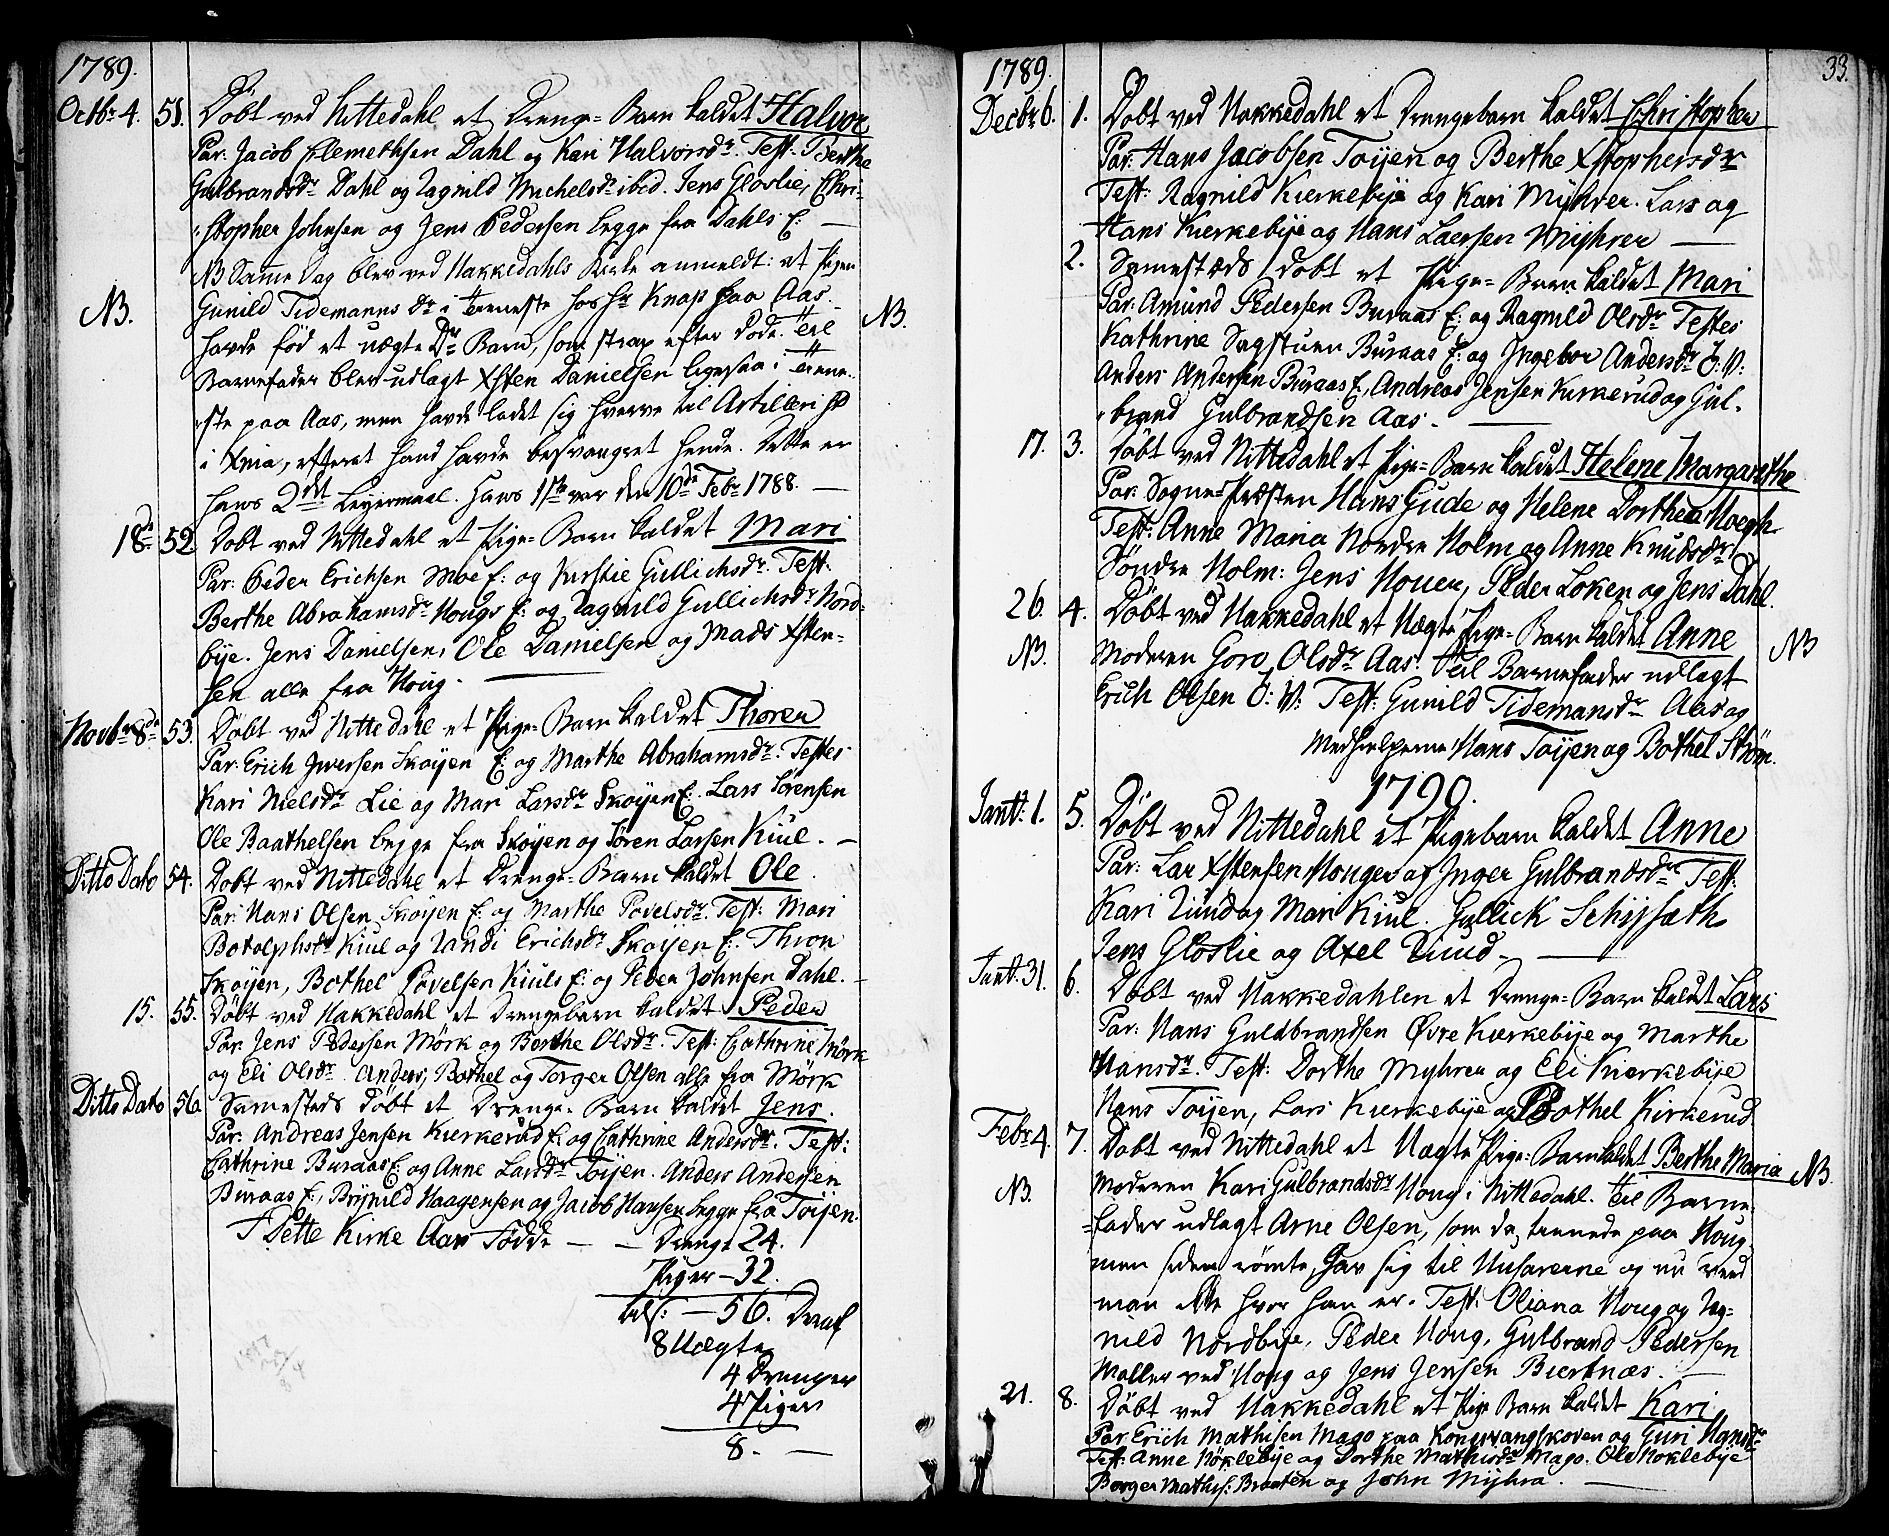 1789.
Octbr 4. 51. Döbt ved Nittedahl et Drenge-Barn kaldet Halvor
Par: Jacob Clemethsen Dahl og Kari Halvorsdr. Test: Berthe
Gulbrandsdr Dahl og Ragnild Michelsdr ibid. Jens Gloslie, Chri-
stopher Johnsen og Jens Pedersen begge fra Dahls E: —
NB Samme Dag blev ved Hakkedahls Kirke anmeldt: at Pigen
NB. Gunild Tidemanns dr i tieneste hos Hr Knap paa Aas. NB.
havde föd et uægte Dr Barn, som strax efter döde. Til
Barnefader blev udlagt Xsten Danielsen ligesaa i tiene-
ste paa Aas, men havde ladet sig hverve til Artilleri
i Xnia, efterat hand havde besvangret hende. Dette er
hans 2det Leyermaal. Hans 1ste var den 10de Febr 1788. —
18de 52. Döbt ved Nittedahl et Pige-Barn kaldet Mari
Par: Peder Erichsen Moe E: og Kirstie Gullichsdr. Test.
Berthe Abrahamsdr Hougs E: og Ragnild Gullichsdr Nord-
bye. Jens Danielsen, Ole Danielsen og Mads Xsten-
sen alle fra Houg. —
Novbr 8de 53. Döbt ved Nittedahl et Pige-Barn kaldet Thoren
Par: Erich Iversen Skoyen E: og Marthe Abrahamsdr. Testes
Kari Nielsdr Lie og Mar Larsdr Skoyen E: Lars Sörensen
Ole Baarthelsen begge fra Skoyen og Sören Larsen Kiul. —
Ditto Dato 54. Döbt ved Nittedahl et Drenge-Barn kaldet Ole.
Par: Hans Olsen Skoyen E: og Marthe Povelsdr. Test: Mari
Botolphsdr Kiul og Randi Erichsdr Skoyen E: Thron
Skoyen, Bothel Povelsen Kiuls E: og Peder Johnsen Dahl. —
15. 55. Döbt ved Hakkedahl et Drengebarn kaldet Peder
Par: Jens Pedersen Mörk og Berthe Olsdr. Test: Cathrine Mörk
og Eli Olsdr. Anders, Bothel og Torger Olsen alle fra Mörk
Ditto Dato 56. Samesteds döbt et Drenge-Barn kaldet Jens.
Par: Andreas Jensen Kierkerud E: og Cathrine Andersdr. Test:
Cathrine Buraas E: og Anne Larsdr Toyen. Anders Andersen
Buraas E:, Brynild Haagensen og Jacob Hansen begge fra Toyen.
I Dette Kirke Aar Födde — — Drenge 24.
Piger — 32.
— 56. Deraf
8 Uægte
4 Drenger
4 Piger
8. —
33.
1789.
Decbr 6. 1. Döbt ved Hakkedahl et Drengebarn kaldet Christopher
Par: Hans Jacobsen Toyen og Berthe Xstophersdr
Test: Ragnild Kierkebye og Kari Myhrer. Lars og
Hans Kierkebye og Hans Laersen Myhrer —
2. Samestæds döbt et Pige-Barn kaldet Mari
Par: Amund Pedersen Buraas E: og Ragnild Olsdr Testes
Kathrine Sagstuen Buraas E: og Ingebor Andersdr I: V:
Anders Andersen Buraas E:, Andreas Jensen Kirkerud og Gul-
brand Gulbrandsen Aas. —
17. 3. Föbt ved Nittedahl et Pige-Barn kaldet Helene Margarethe
Par: Sogne-Præsten Hans Gude og Helene Dorthea Hoegh
Test: Anne Maria Nordre Holm og Anne Knudsdr
Söndre Holm: Jens Houer, Peder Löken og Jens Dahl.
26. 4. Döbt ved Hakkedahl et Uægte Pige-Barn kaldet Anne
NB. Moderen Goro Olsdr Aas. Til Barnefader udlagt NB
Erich Olsen I: V: Test: Gunild Tidemansdr Aas og
Medhielperne Hans Toyen og Bothel Ström.
1790.
Janv: 1. 5. Döbt ved Nittedahl et Pigebarn kaldet Anne
Par: Lar Xstensen Houger og Inger Gulbrandsdr Test:
Kari Ruud og Mari Kiul. Gullick
Jens Gloslie og Axel Ruud. —
Janv. 31. 6. Döbt ved Hakkedahlen et Drenge-Barn kaldet Lars
Par: Hans Guldbrandsen Øvre Kierkebye og Marthe
Hansdr. Test: Dorthe Myhrer og Eli Kierkebye
Hans Toyen, Lars Kierkebye og Bothel Kirkerud.
Febr 4. 7. Döbt ved Nittedahl et Uægte Pige-Barn kaldet Berthe Maria NB.
NB. Moderen Kari Gulbrandsdr Houg i Nittedahl. Til Barne-
fader udlagt Arne Olsen, som da tienede paa Houg
men siden römte, gav sig til Husarerne og nu veed
man ikke hvor han er. Test: Oliana Houg og Rag-
nild Nordbye, Peder Houg, Gulbrand Pedersen
Moller ved Houg og Jens Jensen Biertnæs. —
21. 8. Döbt ved Hakkedahl et Pige Barn kaldet Kari
Par: Erich Mathisen Mago paa Kongsvangskoven og Guri Hansdr
Test: Anne Nöklebye og Dorthe Mathisdr Mago. Ole Noklebye
Borger Mathis: Braaten og John Myhra. —